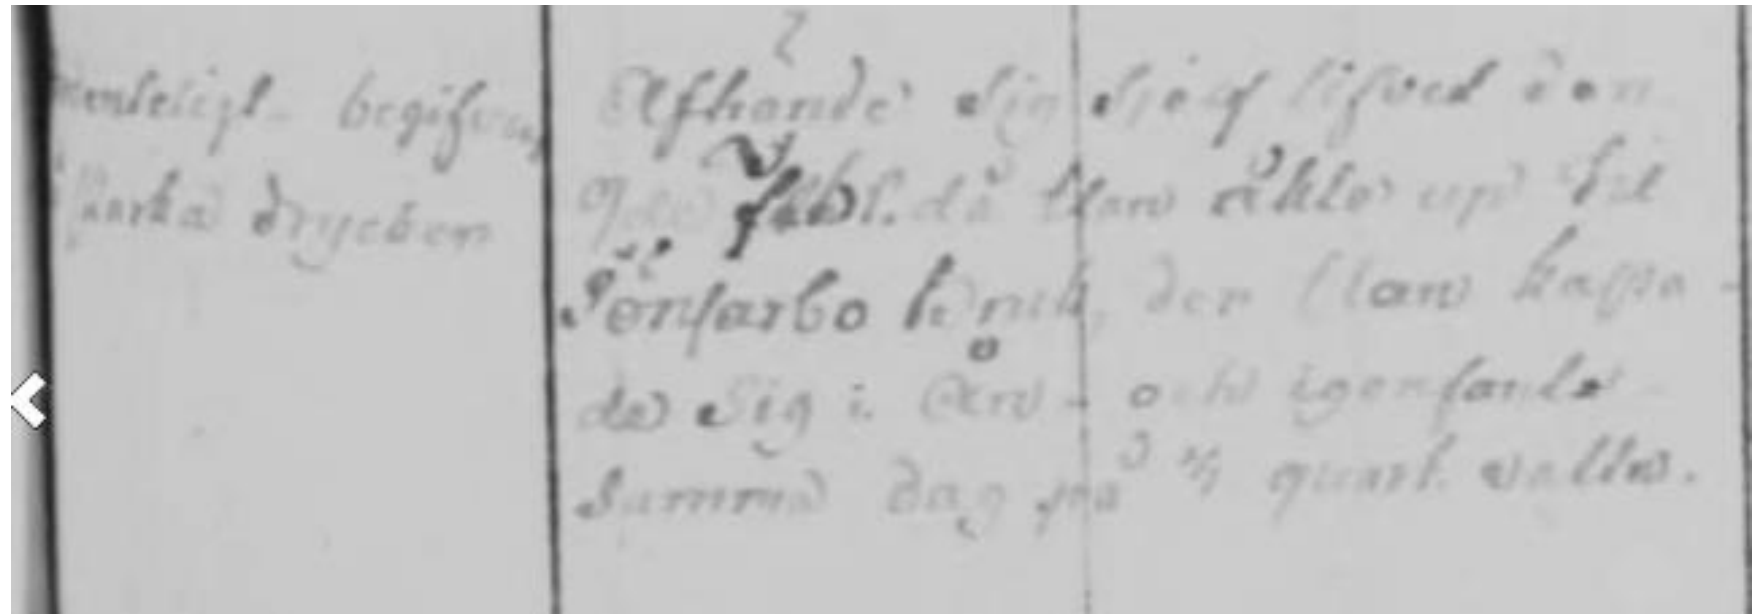 begifven
starka drycker
Afhände sig sjelf lifvet den
9de febr. då han åkte up til
Tönsarbo bruk, der han kasta-
de sig i Ån - och igenfants
Samma dag på quart. vattn.